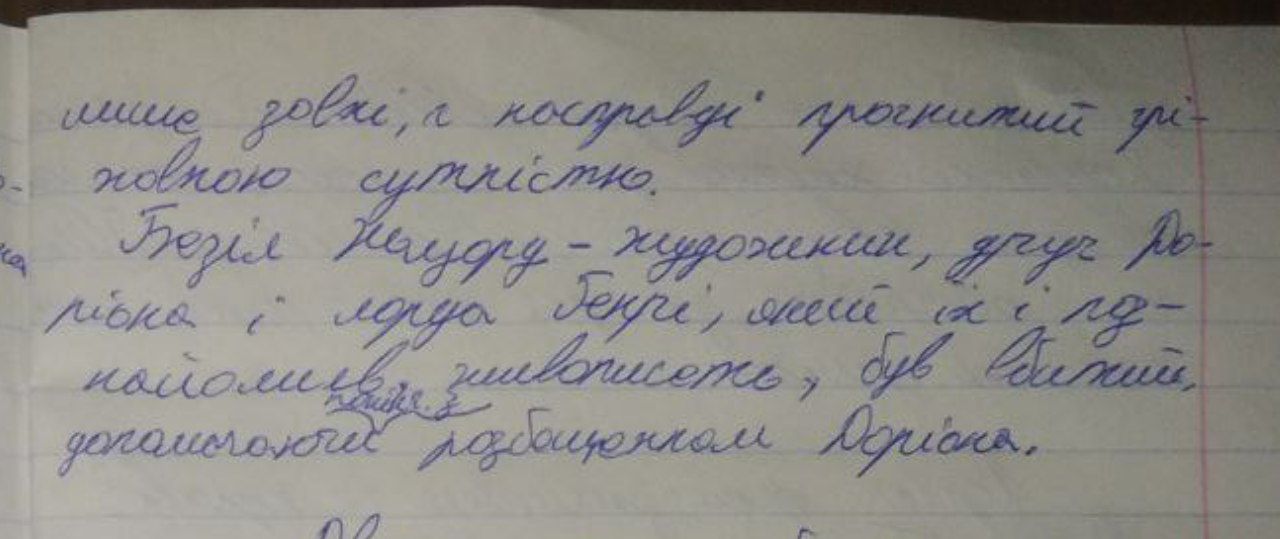 лише зовні, а насправді прогнитий грі-
ховною сутністю.
Безіл Холуорд - художник, друг До-
ріана і лорда Генрі, який їх і поз-
найомив, живописець, був вбитий,
допомагаючи розбещеном Доріана.